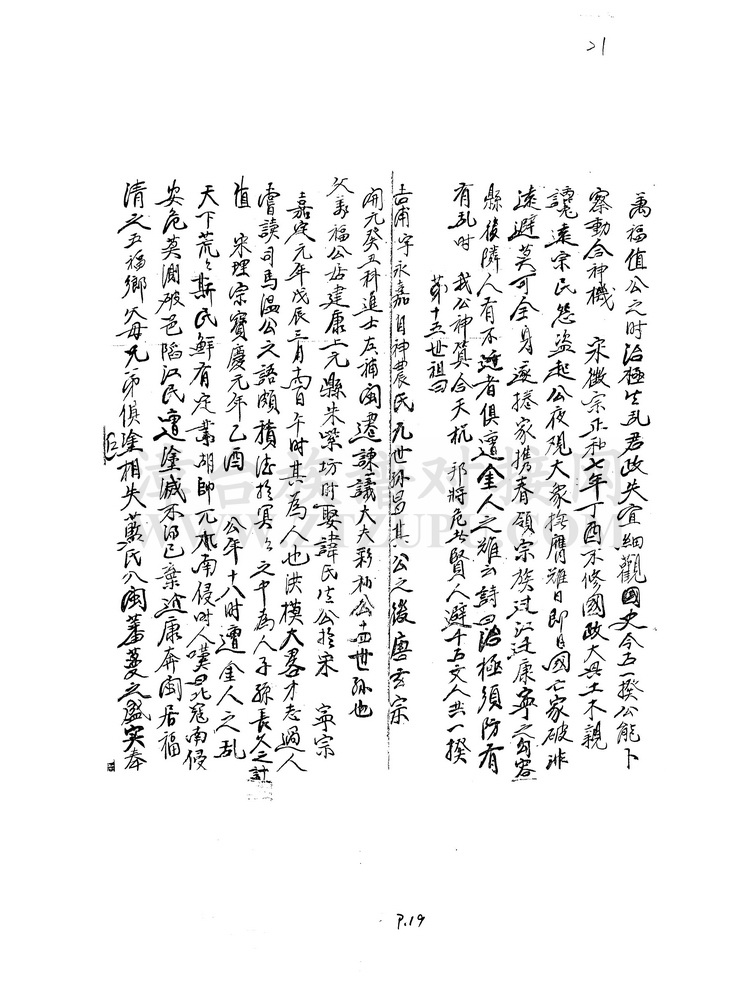 21
萬福值公之时治極生乱君政失宜細觀國史今古一揆公能卜
察動合神機 宋徽宗正和七年丁酉不修國政大兴土木親
讒遠宗民怨盗起公夜观大象撫膺难曰即日國亡家破非
遠避莫可全身遂捲家携眷領宗族过江迁康寧之勾容
縣後隣人有不避者俱遭金人之难云詩曰治極須防有
有乱时 我公神算合天机 祁將危兮賢人避千古文人共一揆
第十五世祖曰
吉甫字永嘉自神農氏九世孫昌其公之後唐玄宗
開元癸丑科進士左補闕遷諫議大夫彩初公十四世孫也
父義福公居建康上元縣朱紫坊时娶諱氏生公於宋 寧宗
嘉定元年戊辰三月十四日午时其為人也洪模大畧才志過人
嘗讀司馬温公之語頗積德於冥々之中為人子孫長久之計
值 宋理宗寶慶元年乙酉 公年十八时遭金人之乱
天下荒々斯民鮮有定業胡帥兀朮南侵时人嘆曰北寇南侵
安危莫測破邑陷江民遭塗滅不得已棄建康奔闽居福
清之五福鄉父母兄弟俱塗相失黄氏入闽蕃蔓之盛实奉
漳台族谱对接网
WWW.ZTZUPU.COM
P.19